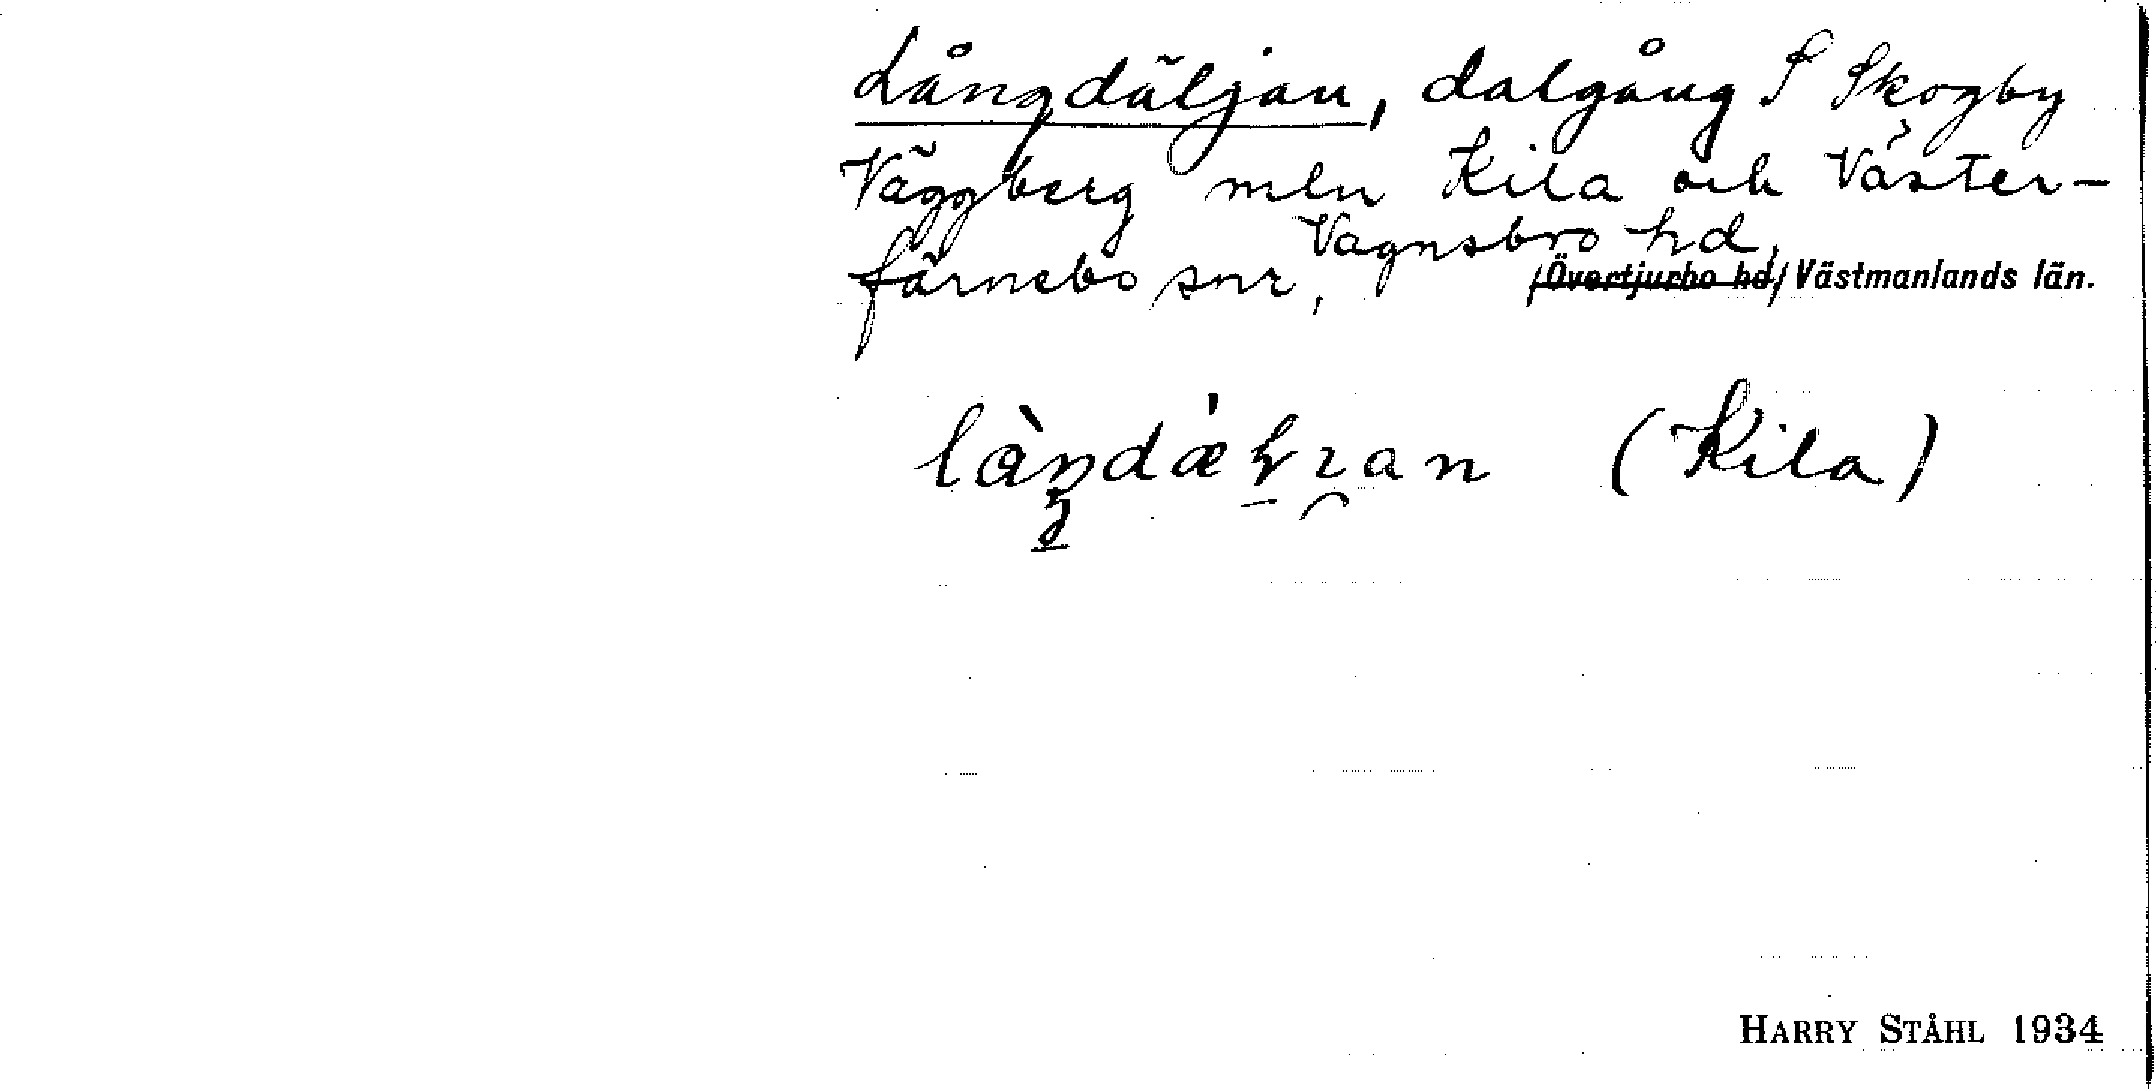 Långdäljan, dalgång S Skogby
Väggberg mln Kila och Väster-
Vagnsbro hd,
färnebo snr, /Övertjurbo hd/ Västmanlands län.
(Kila)
HARRY STÅHL 1934